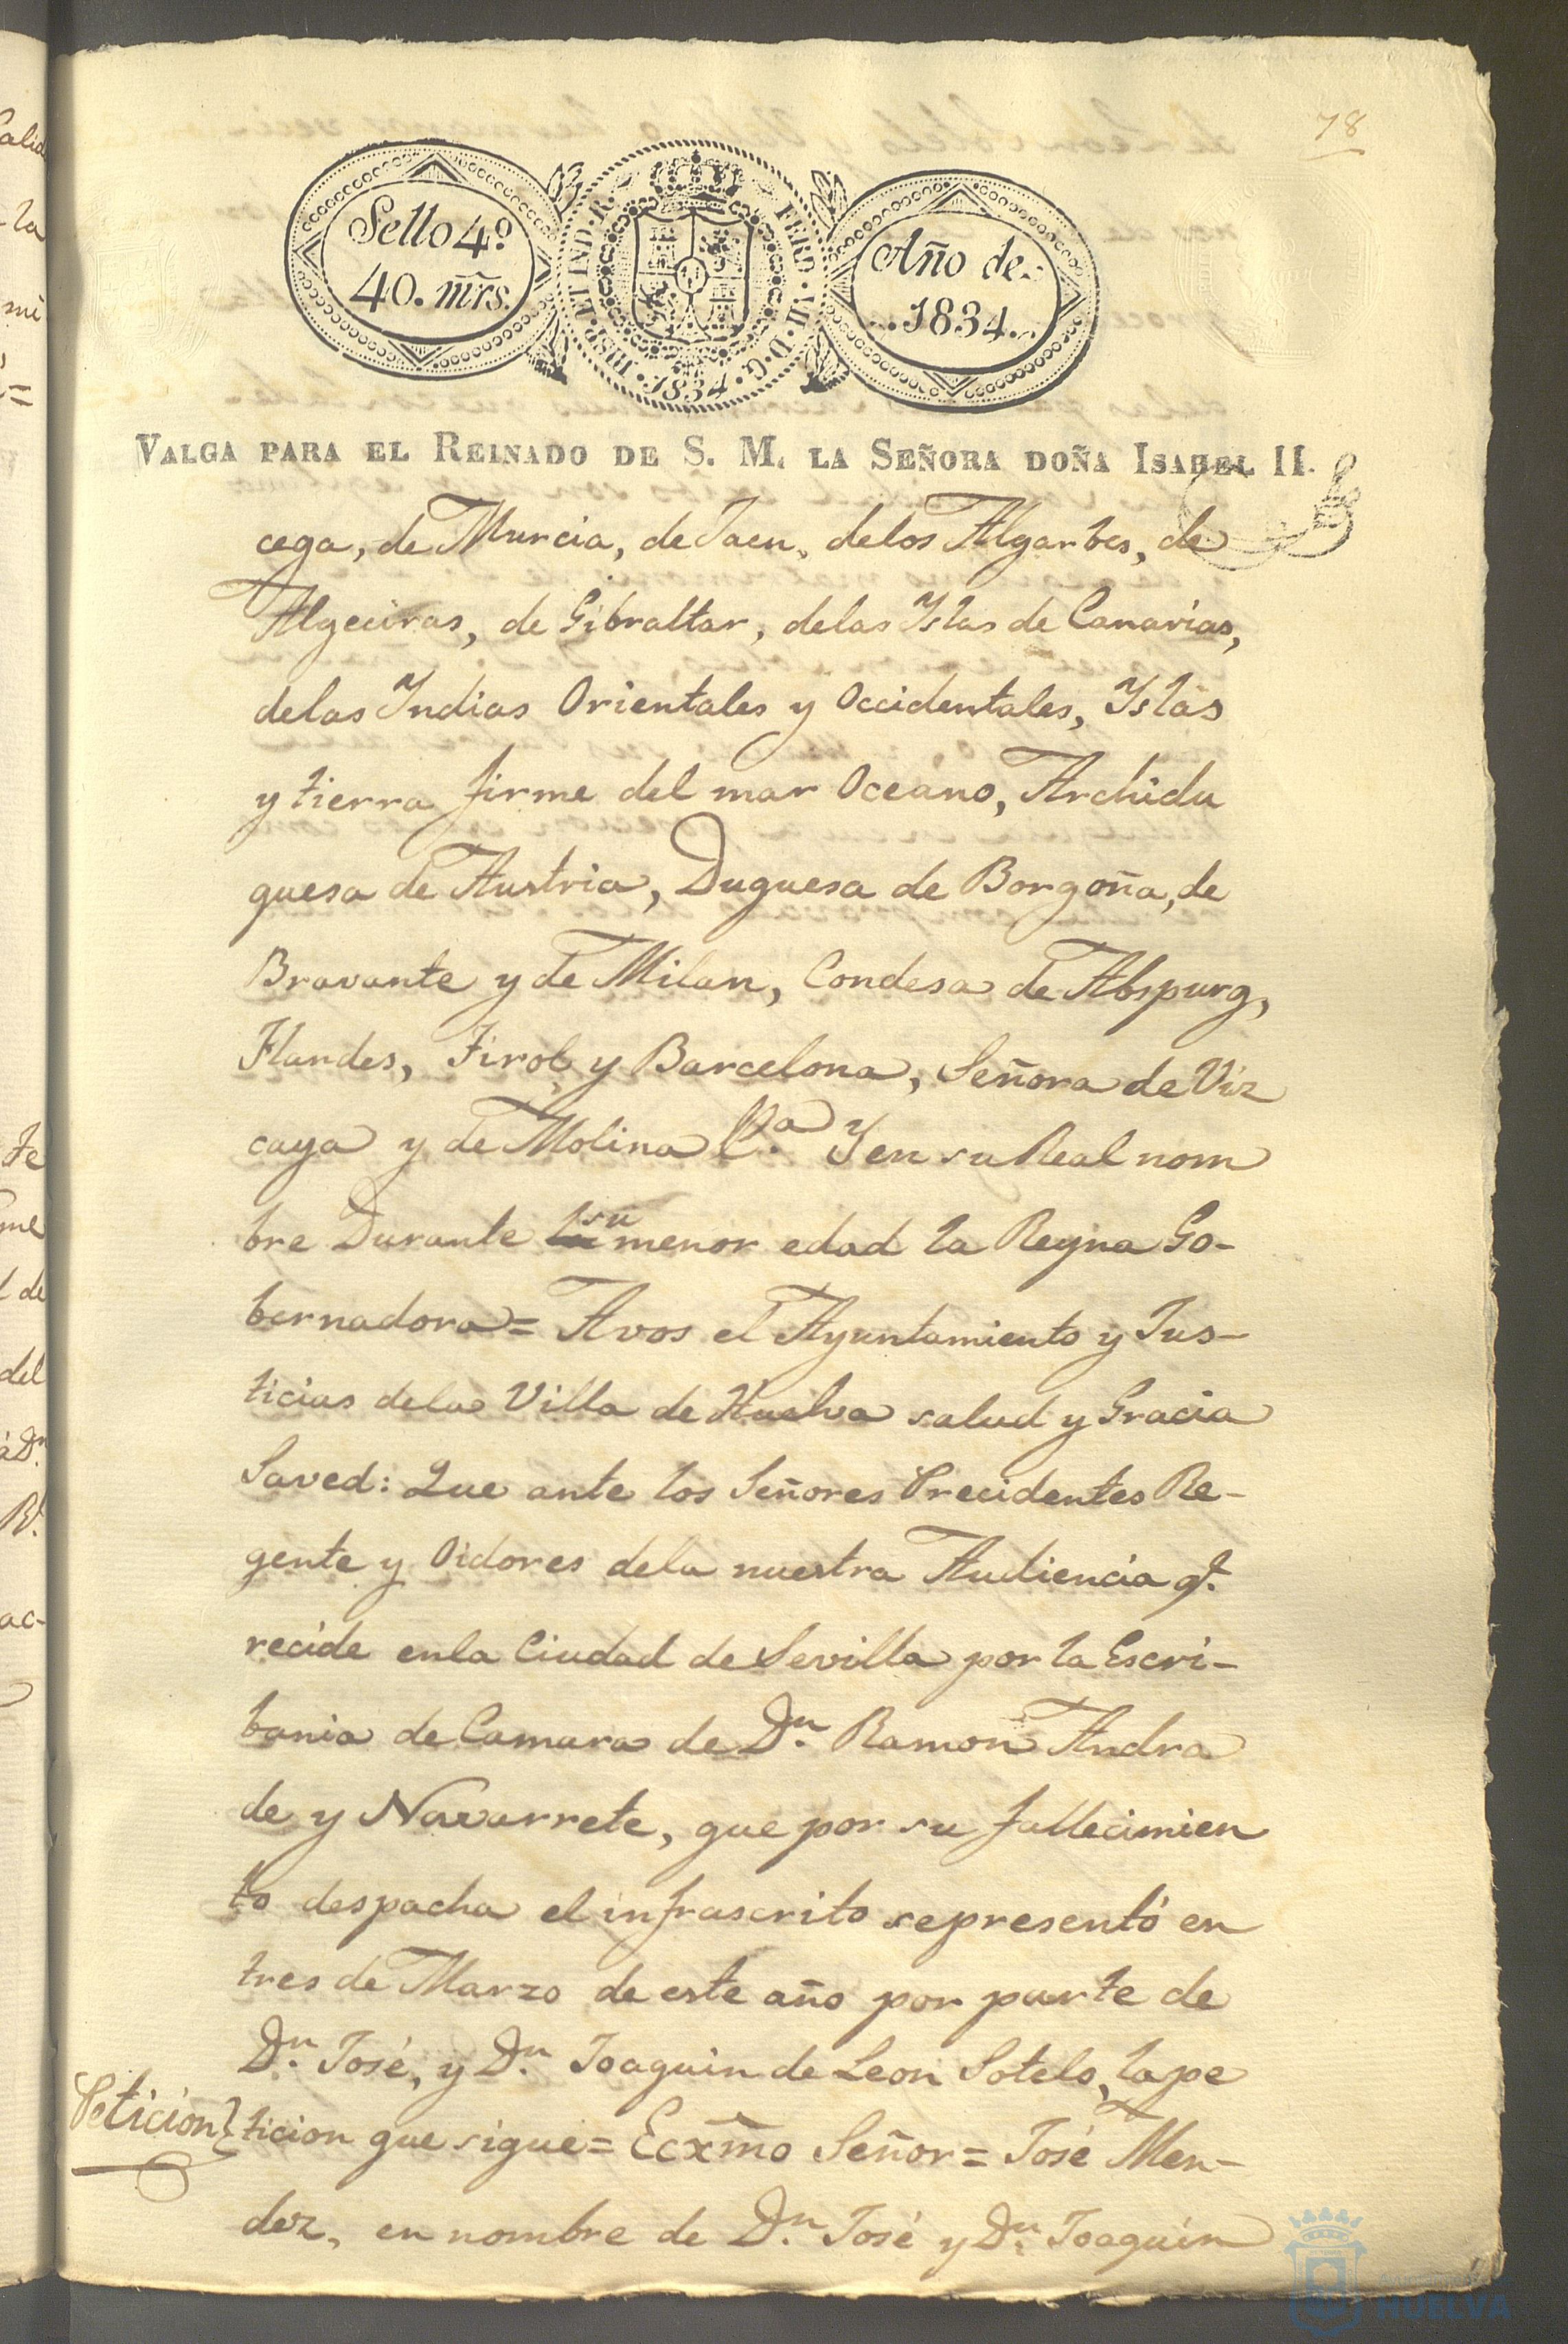 78
Sello 4º
40. mrs.
HISP. ET IND. R. FERD. VII. D. G. 1834.
Año de
1834.
VALGA PARA EL REINADO DE S. M. LA SEÑORA DOÑA ISABEL II.
cega, de Murcia, de Jaen, delos Algarbes, de
Algeciras, de Gibraltar, delas Yslas de Canarias,
delas Yndias Orientales y Occidentales, Yslas
y tierra firme del mar Oceano, Archidu
quesa de Austria, Duquesa de Borgoña, de
Bravante y de Milan, Condesa de Abspurg,
Flandes, Tirol, y Barcelona, Señora de Viz
caya y de Molina &.ª Y en su Real nom
bre Durante su menor edad la Reyna Go-
bernadora = Avos el Ayuntamiento y Jus-
ticias dela Villa de Huelva salud y Gracia
Saved: Que ante los Señores Precidentes Re-
gente y Oidores dela nuestra Audiencia qᵉ.
recide enla Ciudad de Sevilla por la Escri-
bania de Camara de Dⁿ. Ramon Andra
de y Navarrete, que por su fallecimien
to despacha el infrascrito sepresentó en
tres de Marzo de este año por parte de
Dⁿ. José, y Dⁿ. Joaquin de Leon Sotelo, la pe
Peticion} ticion que sigue = Ecxmo Señor = José Men-
dez, en nombre de Dⁿ. José y Dⁿ. Joaquin
HUELVA